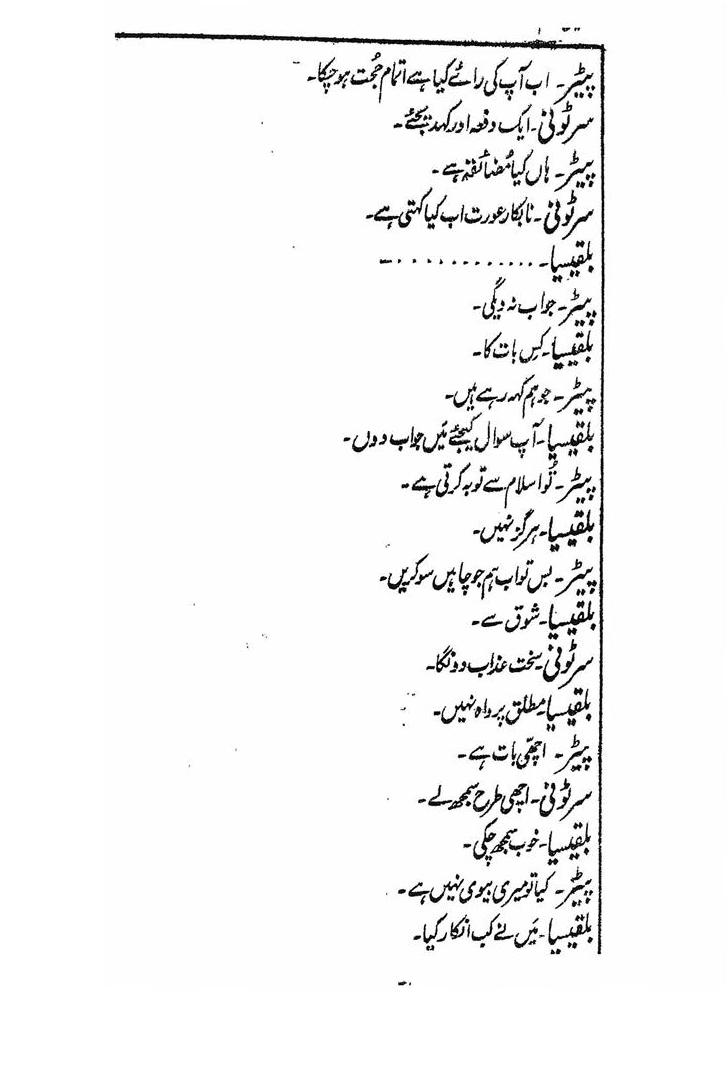 پیٹر۔ اب آپ کی رائے کیا ہے اتمام حُجت ہو چکا۔
سرٹونی۔ ایک دفعہ اور کہہ دیجئے۔
پیٹر۔ ہاں کیا مُضائقہ ہے۔
سرٹونی۔ نابکار عورت اب کیا کہتی ہے۔
بلقیسیا۔ ............۔
پیٹر۔ جواب نہ دیگی۔
بلقیسیا۔ کِس بات کا۔
پیٹر۔ جو ہم کہہ رہے ہیں۔
بلقیسیا۔ آپ سوال کیجئے مَیں جواب دوں۔
پیٹر۔ تُو اسلام سے توبہ کرتی ہے۔
بلقیسیا۔ ہرگز نہیں۔
پیٹر۔ بس تو اب ہم جو چاہیں سو کریں۔
بلقیسیا۔ شوق سے۔
سرٹونی۔ سخت عذاب دونگا۔
بلقیسیا۔ مطلق پرواہ نہیں۔
پیٹر۔ اچھّی بات ہے۔
سرٹونی۔ اچھی طرح سمجھ لے۔
بلقیسیا۔ خوب سمجھ چکی۔
پیٹر۔ کیا تو میری بیوی نہیں ہے۔
بلقیسیا۔ مَیں نے کب انکار کیا۔